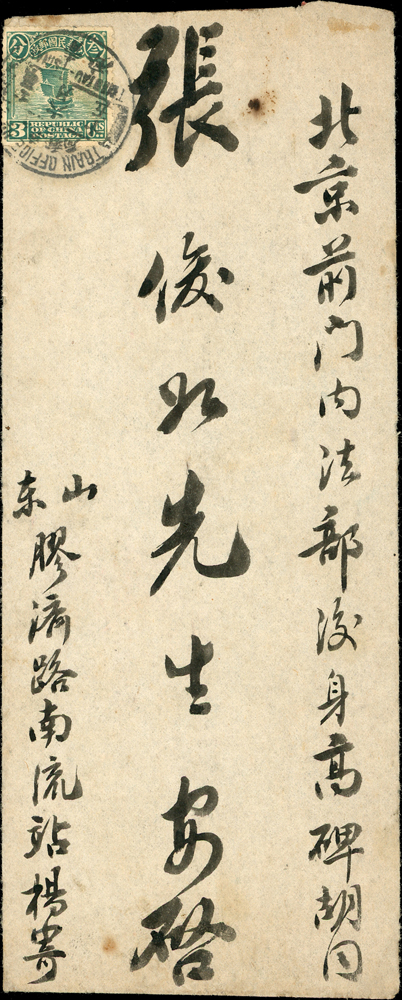 北京前门内法部後身高碑胡同
張俊卿先生安啓
山东
膠濟路南流站楊寄
中華民國郵政
3 CTS
REPUBLIC
OF CHINA
POSTAGE
TRAIN OFFICE